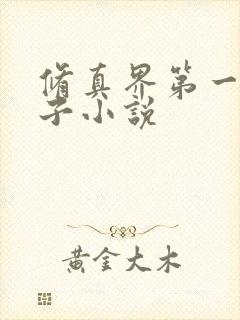 脩真界第一
子小說
黃金大木